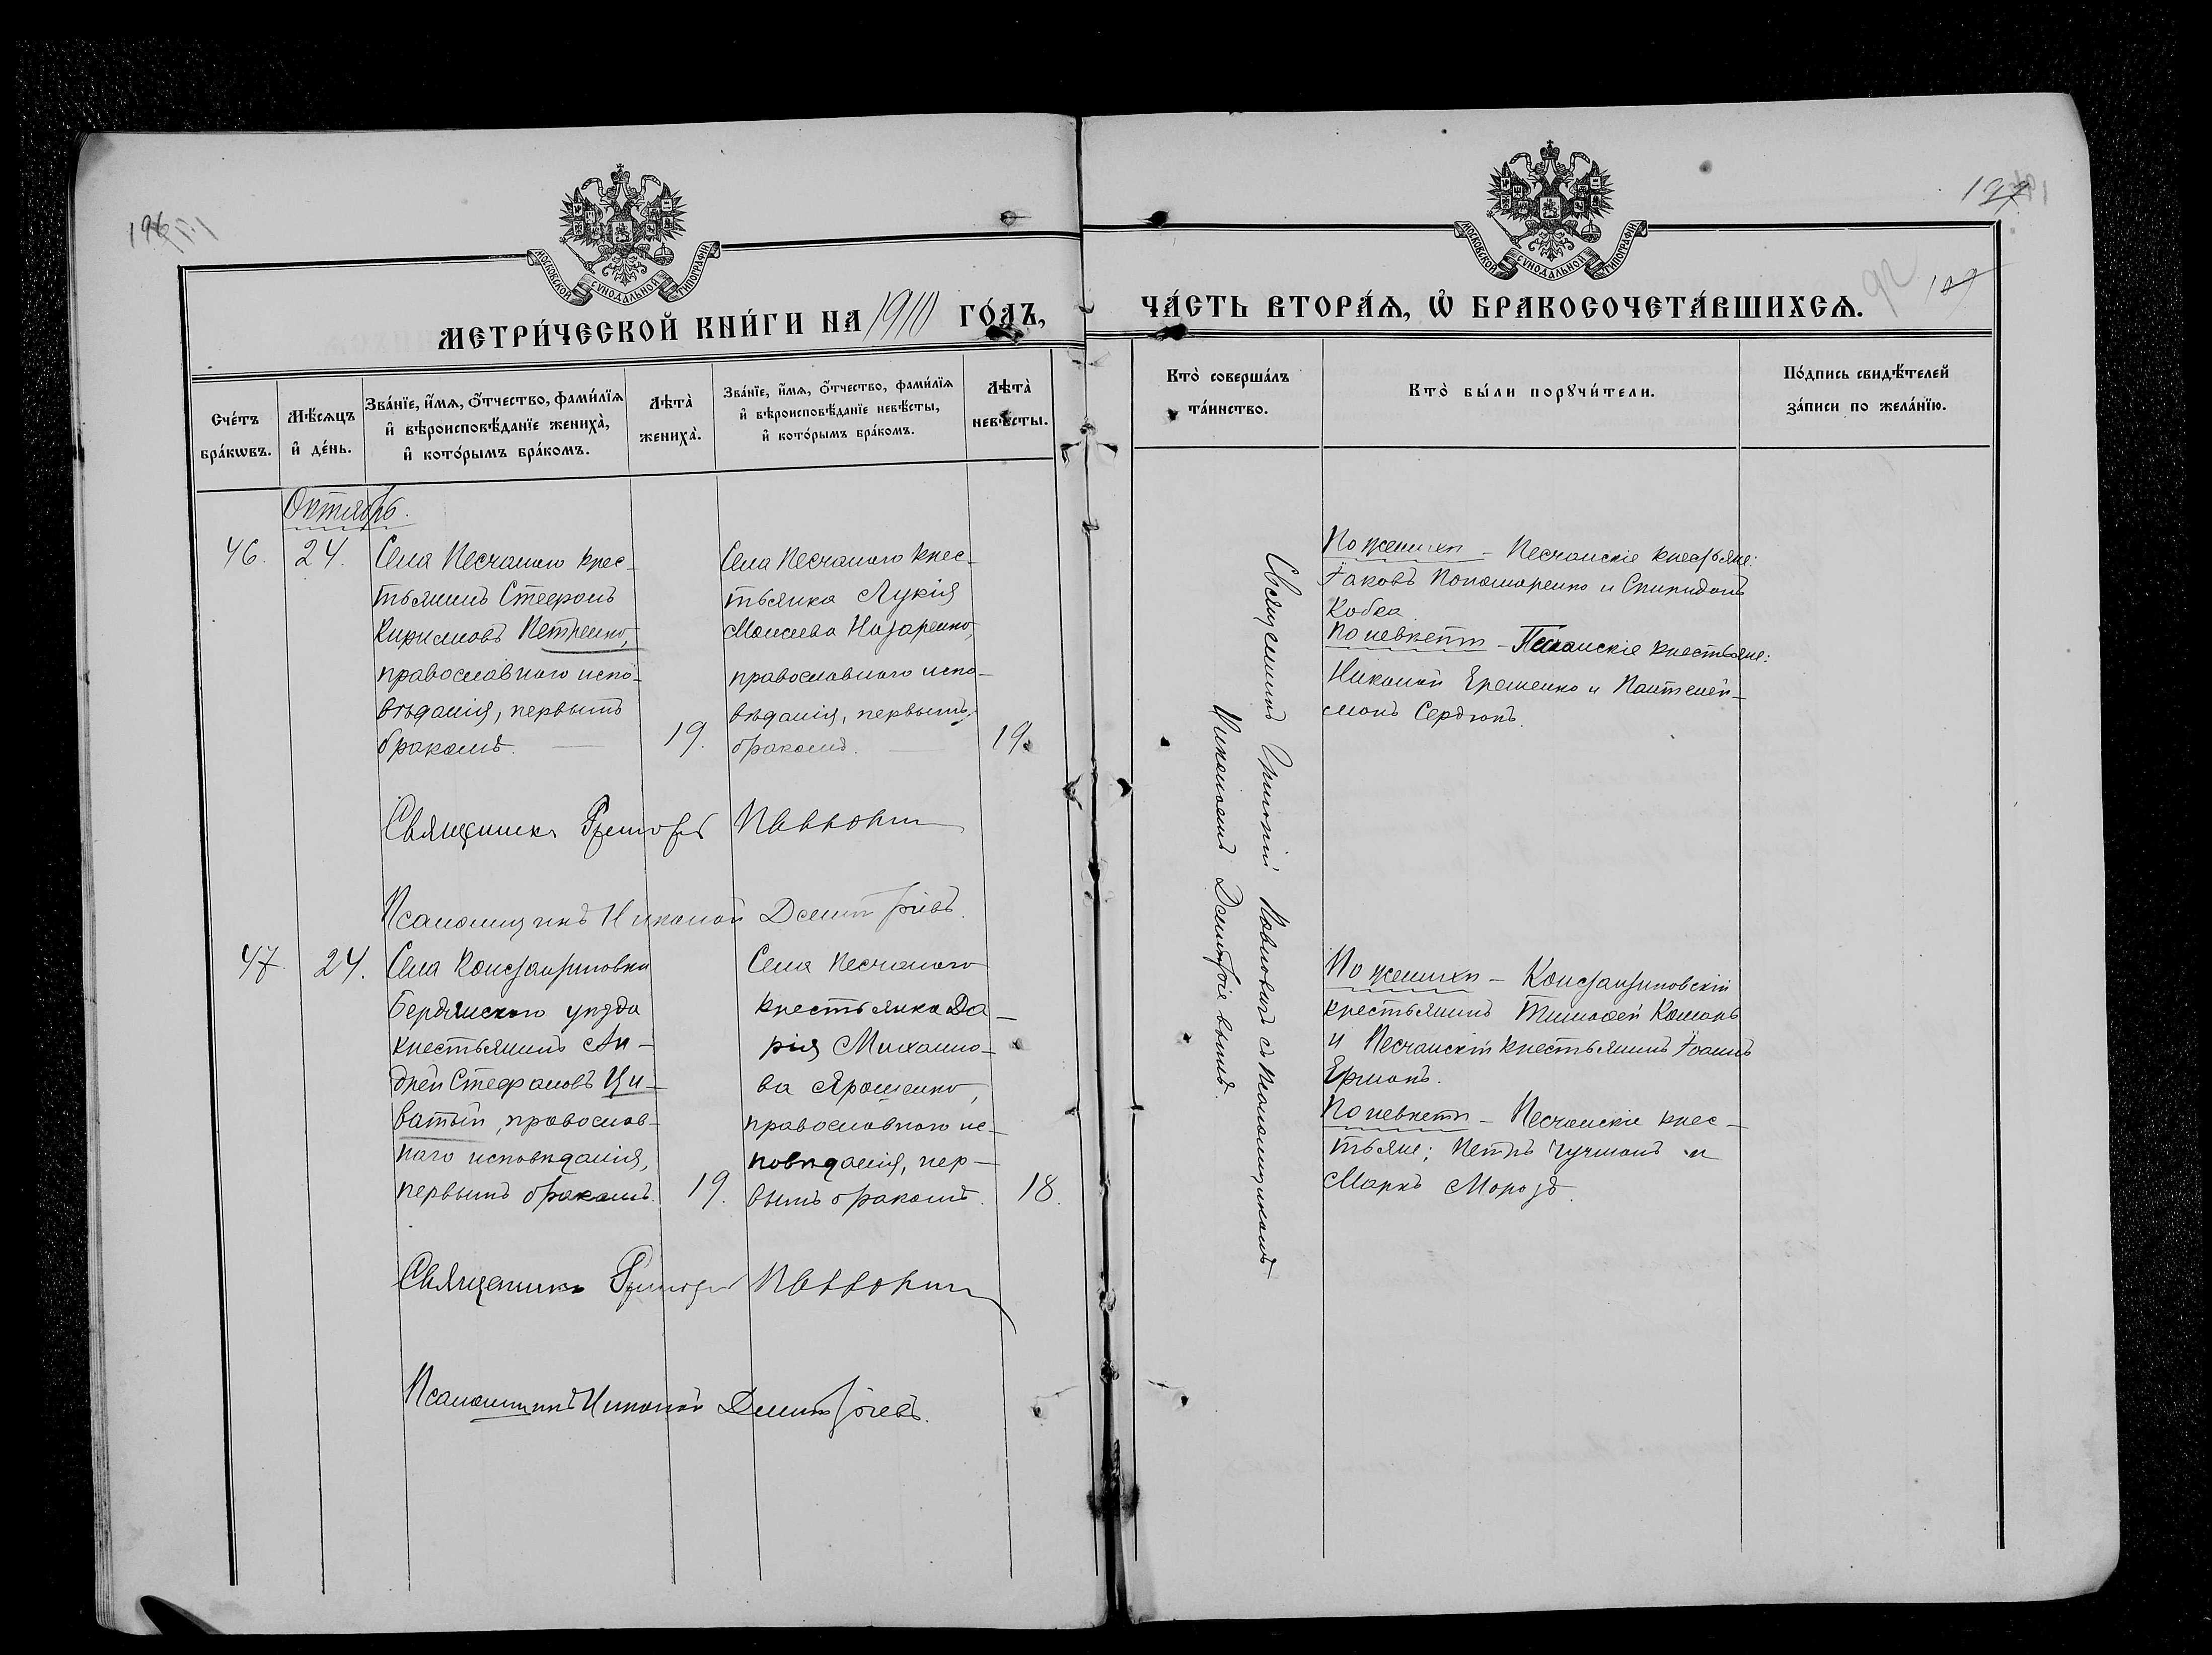 196
127
МОСКОВСКОЙ СѴНОДАЛЬНОЙ ТИПОГРАФІИ
МЕТРИ́ЧЕСКОЙ КНИ́ГИ НА 1910 ГО́ДЪ,
Сче́тъ бра́кѡвъ.
Мѣ́сѧцъ и҆ де́нь.
Зва́нїе, и҆́мѧ, ѻ҆́тчество, фами́лїѧ
и҆ вѣроисповѣ́данїе жениха̀,
и҆ кото́рымъ бра́комъ.
Лѣта̀ жениха̀.
Зва́нїе, и҆́мѧ, ѻ҆́тчество, фами́лїѧ
и҆ вѣроисповѣ́данїе невѣ́сты,
и҆ кото́рымъ бра́комъ.
Лѣта̀ невѣ́сты.
Октябрь.
46.
24.
Села Песчаного крес-
тьянинъ Стефанъ
Кириловъ Петренко,
православнаго испо-
вѣданія, первымъ
бракомъ.
19.
Села Песчаного крес-
тьянка Лукія
Моисеева Назаренко,
православнаго испо-
вѣданія, первымъ
бракомъ.
19.
Священникъ Григорій Павловичъ
Псаломщикъ Николай Димитріевъ.
47.
24.
Села Константиновки
Бердянскаго уѣзда
крестьянинъ Ан-
дрей Стефановъ
православ-
наго исповѣданія,
первымъ бракомъ.
19.
Села Песчаного
крестьянка Да-
рія Михаило-
ва Ярошенко,
православнаго ис-
повѣданія, пер-
вымъ бракомъ.
18.
Священникъ Григорій Павловичъ
Псаломщикъ Николай Димитріевъ.
МОСКОВСКОЙ СѴНОДАЛЬНОЙ ТИПОГРАФІИ
92
109
ЧА́СТЬ ВТОРА́Ѧ, Ѡ҆ БРАКОСОЧЕТА́ВШИХСѦ.
Кто̀ соверша́лъ та́инство.
Кто̀ бы́ли порꙋчи́тели.
По́дпись свидѣ́телей
за́писи по жела́нїю.
Священникъ Григорій Павловичъ съ псаломщикомъ
Николаемъ Димитріевымъ.
По женихѣ - Песчанскіе крестьяне:
Іаковъ Пономаренко и Спиридонъ
Кобка
По невѣстѣ - Песчанскіе крестьяне:
Николай Еременко и Пантелей-
монъ Сердюкъ.
По женихѣ - Константиновскій
крестьянинъ Тимофей
и Песчанскій крестьянинъ Іоаннъ
Ермакъ.
По невѣстѣ - Песчанскіе крес-
тьяне: Петръ Чучманъ и
Маркъ Морозъ.